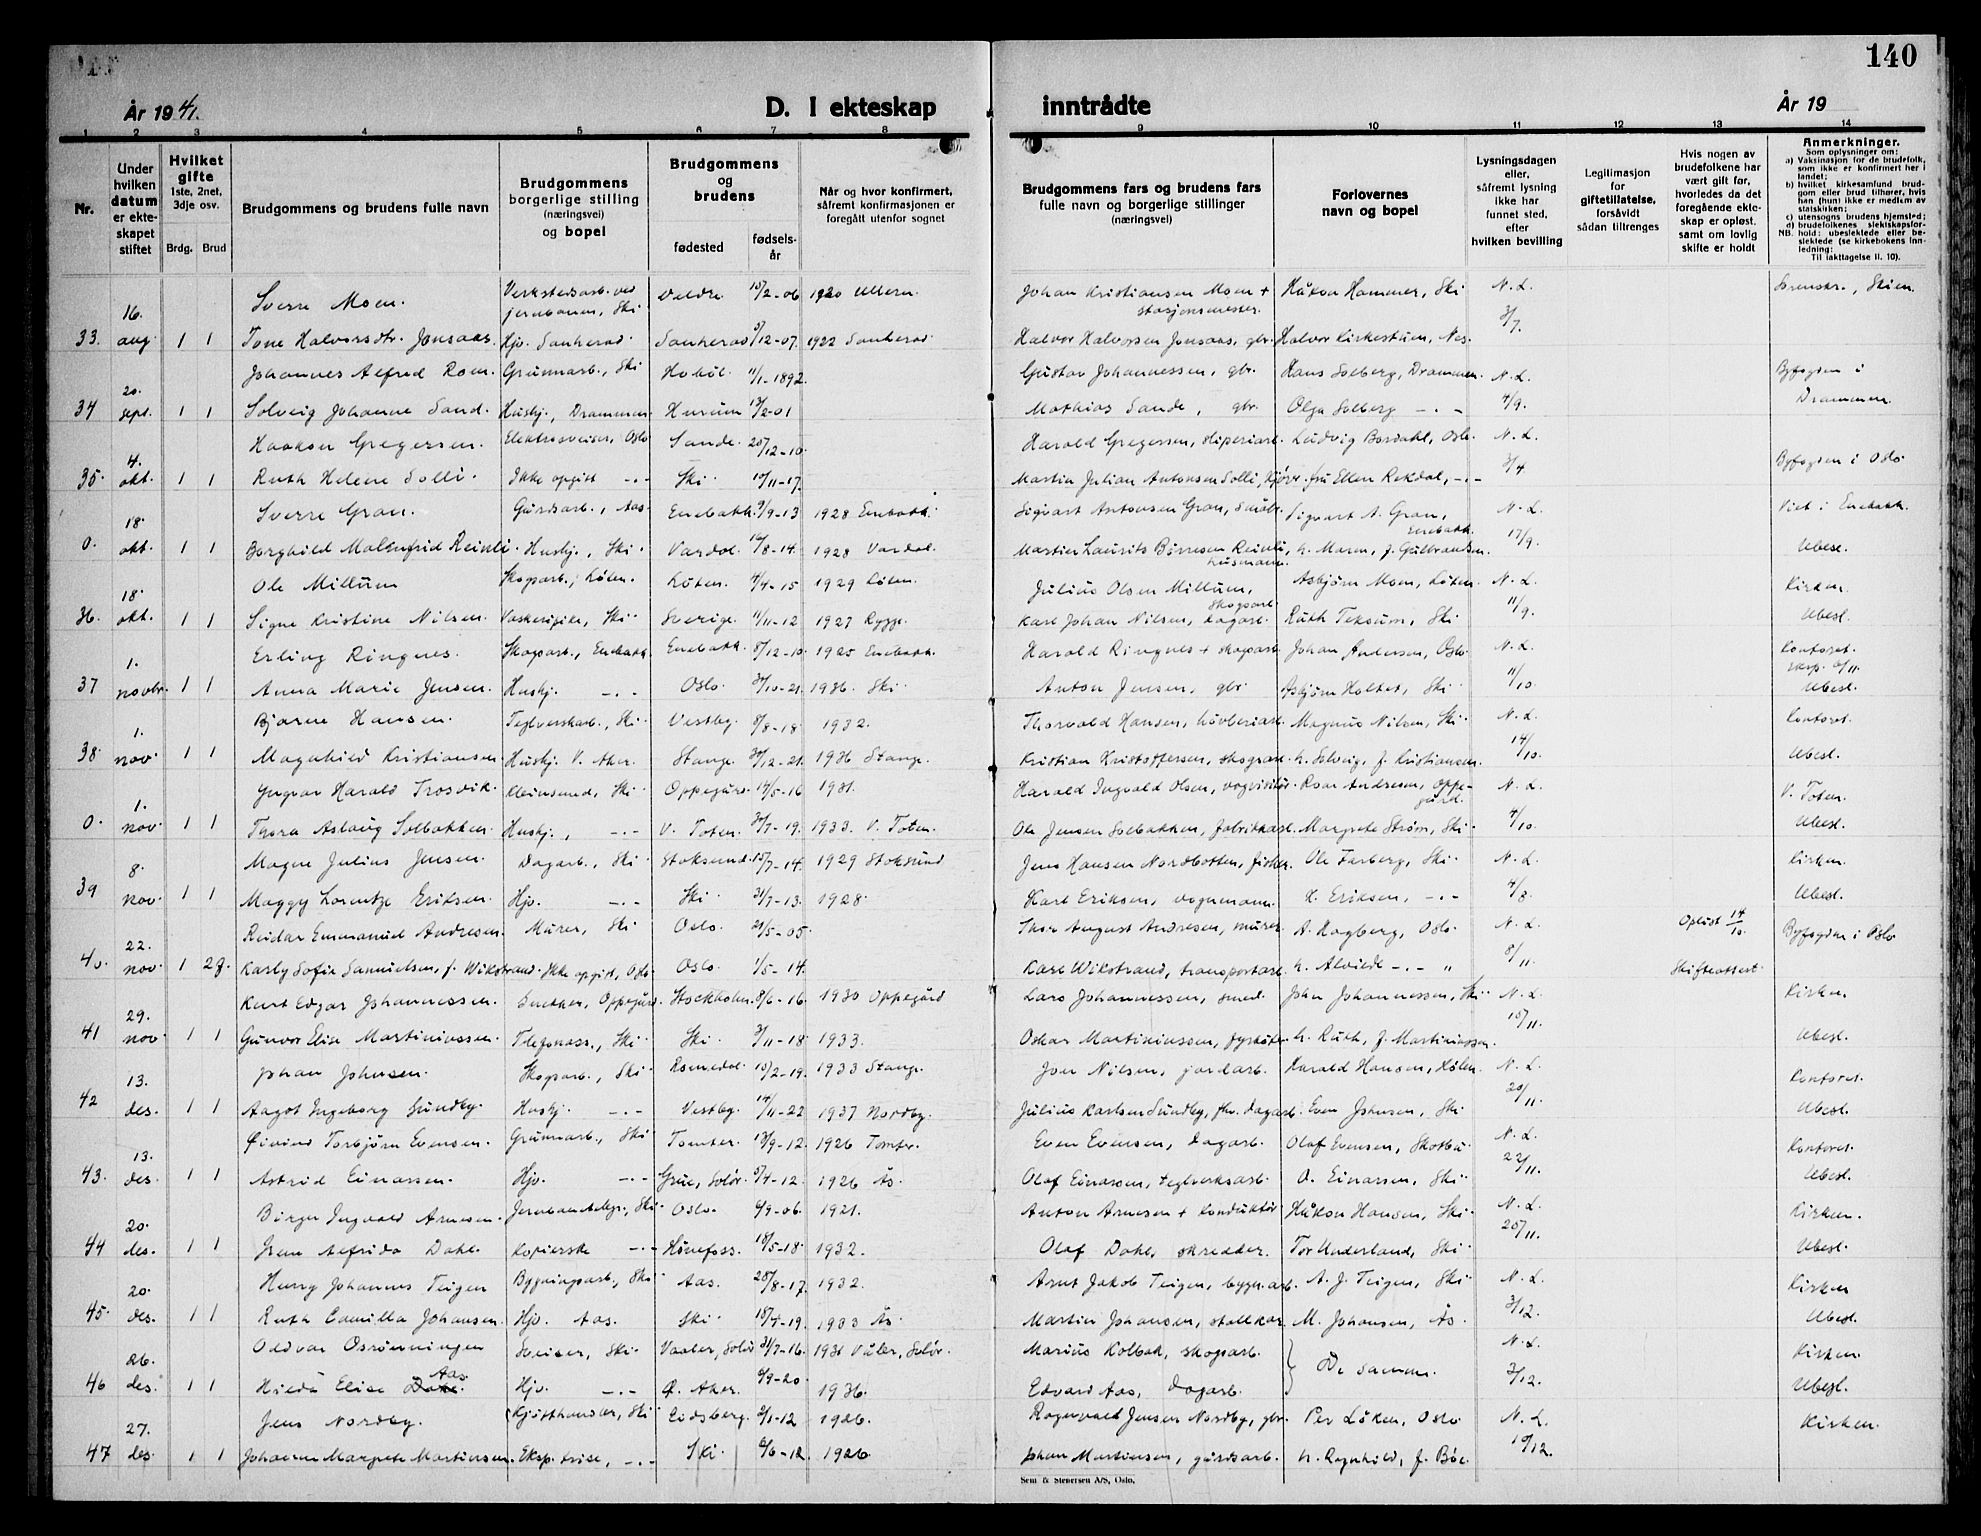 140
År 19 41.
D. I ekteskap
inntrådte
År 19
1 2 3 4 5 6 7 8 9 10 11 12 13 14
Nr.
Under hvilken datum er ekteskapet stiftet
Hvilket gifte
1ste, 2net, 3dje osv.
Brdg. Brud
Brudgommens og brudens fulle navn
Brudgommens borgerlige stilling (næringsvei) og bopel
Brudgommens og brudens
fødested
fødsels-år
Når og hvor konfirmert, såfremt konfirmasjonen er foregått utenfor sognet
Brudgommens fars og brudens fars fulle navn og borgerlige stillinger (næringsvei)
Forlovernes navn og bopel
Lysningsdagen eller, såfremt lysning ikke har funnet sted, efter hvilken bevilling
Legitimasjon for giftetillatelse, forsåvidt sådan tiltrenges
Hvis nogen av brudefolkene har vært gift før, hvorledes da det foregående ekteskap er opløst, samt om lovlig skifte er holdt
Anmerkninger.
Som oplysninger om:
a) Vaksinasjon for de brudefolk, som ikke er konfirmert her i landet;
b) hvilket kirkesamfund brudgom eller brud tilhører, hvis han (hun) ikke er medlem av statskirken;
c) utensogns brudens hjemsted;
d) brudefolkenes slektskapsforhold: ubeslektede eller beslektede (se kirkebokens innledning:
NB.
Til iakttagelse II. 10).
16. Sverre Moen. Verkstedsarb. ved jernbanen, Ski 15/2-06 1920 Ullern Johan Kristiansen Moen + stasjonsmester. Håkon Hammer, Ski N. L. Sorenskr., Skien.
33. aug. 1 1 Tone Halvorsdtr. Jonsaas. Hjv. Sauherad Sauherad 5/12-07. 1922 Sauherad Halvor Halvorsen Jonsaas, gbr. Halvor Kirkestuen, Nes 3/7.
20. Johannes Alfred Roen. Grunnarb., Ski Hobøl. 11/1-1892. Gustav Johannessen, gbr. Hans Solberg, Drammen. N. L. Byfogden i
34 sept. 1 1 Solveig Johanne Sand. Hushj., Drammen. Hurum 13/2-01 Mathias Sande, gbr. Olga Solberg -.- 4/9. Drammen.
4. Haakon Gregersen. Elektrosveiser, Oslo Sande. 20/12-10. Harald Gregersen, sliperiarb. Ludvig Bordahl, Oslo. N. L.
35. okt. 1 1 Ruth Helene Solli. Ikke opgitt -.- Ski 14/11-17. Martin Julian Antonsen Solli, Kjører. fru Ellen Rekdal, -.- 3/4 Byfogden i Oslo
18. Sverre Gran. Gårdsarb., Aas. Enebakk. 9/9-13 1928 Enebakk. Sigvart Antonsen Gran, småbr. Sigvart A. Gran, Enebakk. N. L. Viet i Enebakk.
0. okt. 1 1 Borghild Malmfrid Reinli. Hushj., Ski Vardal. 14/8-14. 1928 Vardal. Martin Laurits Børresen Reinli, husmann. h. Maren, f. Gulbrandsen. 17/9. Ubesl.
18. Ole Millum Skogsarb., Løten. Løten. 4/4-15 1929 Løten. Julius Olsen Millum, skogsarb. Asbjørn Moen, Løten. N. L. Kirken.
36. okt. 1 1 Signe Kristine Nilsen. Vaskeripike, Ski Sverige. 11/11-12 1927 Rygge. Karl Johan Nilsen, dagarb. Ruth Teksum, Ski 11/9. Ubesl.
1. Erling Ringnes. Skogsarb., Enebakk. Enebakk 8/12-10. 1925 Enebakk. Harald Ringnes + skogsarb. Johan Andersen, Oslo N. L. Kontoret.
37 novbr. 1 1 Anna Marie Jensen. Hushj. -.- Oslo. 1936 Ski Anton Jensen, gbr. Asbjørn Holtet, Ski 11/10. Ubesl.
1. Bjarne Hansen. Teglverksarb., Ski Vestby. 8/8-18 1932. Thorvald Hansen, høvleriarb. Magnus Nilsen, Ski. N. L. Kontoret.
38. nov. 1 1 Magnhild Kristiansen. Hushj. V. Aker. Stange. 30/12-21. 1936 Stange. Kristian Kristoffersen, skogsarb. h. Solveig, f. Kristiansen. 14/10. Ubesl.
1. Yngvar Harald Trosvik. Kleinsmed, Ski Oppegård 14/5-16 1931. Harald Ingvald Olsen, vognvisitør. Roar Andresen, Oppegård. N. L. V. Toten.
0. nov. 1 1 Thora Aslaug Solbakken. Hushj., -.- V. Toten. 30/7-19. 1933. V. Toten. Ole Jensen Solbakken, fabrikkarb. Margrete Strøm, Ski 4/10. Ubesl.
8. Magne Julius Jensen. Dagarb., Ski Stoksund. 15/7-14. 1929 Stoksund Jens Hansen Nordbotten, fisker. Ole Farberg, Ski. N. L. Kirken.
39 nov. 1 1 Maggy Lorentze Eriksen. Hjv. -.- Ski 31/7-13. 1928. Karl Eriksen, vognmann. K. Eriksen, -.- 4/8. Ubesl.
22. Reidar Emmanuel Andresen. Murer, Ski Oslo. 21/5-05. Thor August Andresen, murer A. Hagberg, Oslo. N. L. Opløst 14/10. Byfogden i Oslo
40. nov. 1 2 f. Karly Sofie Samuelsen, f. Wikstrand. Ikke opgitt, Oslo. Oslo. 1/5-14. Karl Wikstrand, transportarb. h. Alvide -.- " 8/11. Skifteattest.
29. Kurt Edgar Johannessen. Snekker, Oppegård. Stockholm. 8/6-16. 1930 Oppegård Lars Johannessen, smed. John Johannessen, Ski N. L. Kirken.
41 nov. 1 1 Gunvor Elise Martiniussen. Telefonass., Ski Ski 3/11-18 1933. Oskar Martiniussen, fyrbøter h. Ruth, f. Martiniussen. 15/11. Ubesl.
13. Johan Johnsen. Skogsarb., Ski Romedal. 15/2-19. 1933 Stange. Joer Nilsen, jordarb. Harald Hansen, Hølen. N. L. Kontoret.
42 des. 1 1 Aagot Ingeborg Sundby. Hushj. -.- Vestby. 14/11-22 1937 Nordby. Julius Karlsen Sundby, fhv. dagarb. Even Johnsen, Ski 20/11. Ubesl.
13. Øivind Torbjørn Evensen. Grunnarb., Ski Tomter. 13/9-12. 1926 Tomter. Even Evensen, dagarb. Olaf Evensen, Skotbu N. L. Kontoret.
43. des. 1 1 Astrid Einarsen. Hjv. -.- Grue, Solør. 5/4-12. 1926 Ås. Olaf Einarsen, teglverksarb. O. Einarsen, Ski 22/11. Ubesl.
20. Birger Ingvald Arnesen. Ski Oslo. 6/9-06. 1921. Anton Arnesen + konduktør Håkon Hansen, Ski N. L. Kirken.
44 des. 1 1 Alfrida Dahl. Kopierske -.- Hønefoss. 18/5-18. 1932. Olaf Dahl, skredder. Tor Underland, Ski 25/11. Ubesl.
20. Henry Johannes Teigen Bygningsarb., Ski Aas. 28/8-17. 1932. Arnt Jakob Teigen, bygn.arb. A. J. Teigen, Ski N. L. Kirken
45. des. 1 1 Ruth Camilla Johansen. Hjv. Aas. Ski 18/4-19. 1933 Ås Martin Johansen, stallkar M. Johansen, Ås 3/12. Ubesl.
26. Oddvar Osrønningen Sveiser, Ski. Vaaler, Solør 31/7-16. 1931 Våler, Solør. Marius Kolbak, skogsarb. De samme. N. L. Kirken.
46 des. 1 1 Hilda Elise Aas Hjv. -.- Ø. Aker. 6/9-20. 1936. Edvard Aas, dagarb. 3/12. Ubesl.
27. Jens Nordby. Kjøtthandler, Ski Eidsberg. 2/1-12 1926. Ragnvald Jensen Nordby, gbr. Per Løken, Oslo N. L. Kirken.
47 des. 1 1 Johanne Margrete Martinsen. Eksp.trise, -.- Ski 6/6-12. 1926 Johan Martinsen, gårdsarb. h. Ragnhild, f. Bøe. 10/12.
Sem & Stenersen A/S, Oslo.